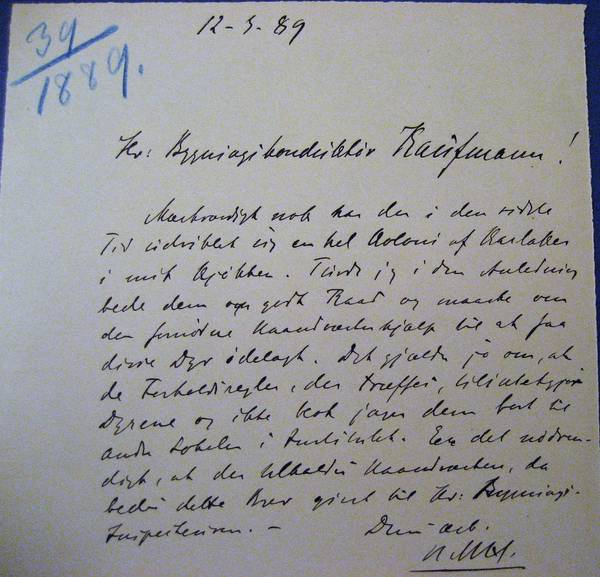 39
1889.
12-3-89
Hr: Bygningskonduktör Kaufmann!
Mærkværdigt nok har der i den sidste
Tid udviklet sig en hel Coloni af Kakerlaker
i mit Kjökken. Turde jeg i den Anledning
bede dem om godt Raad og maaske om
den fornödne Haandværkerhjælp til at faa
disse Dyr ödelagt. Det gjælder jo om, at
de Forholdsregler, der træffes, tilintetgjør
Dyrene og ikke blot jager dem bort til
andre Lokaler i Institutet. Er det nödven-
digt, at der tilkaldes Haandværkere, da
bedes dette Brev givet til Hr: Bygnings-
Inspekteuren. -
Deres ærb.